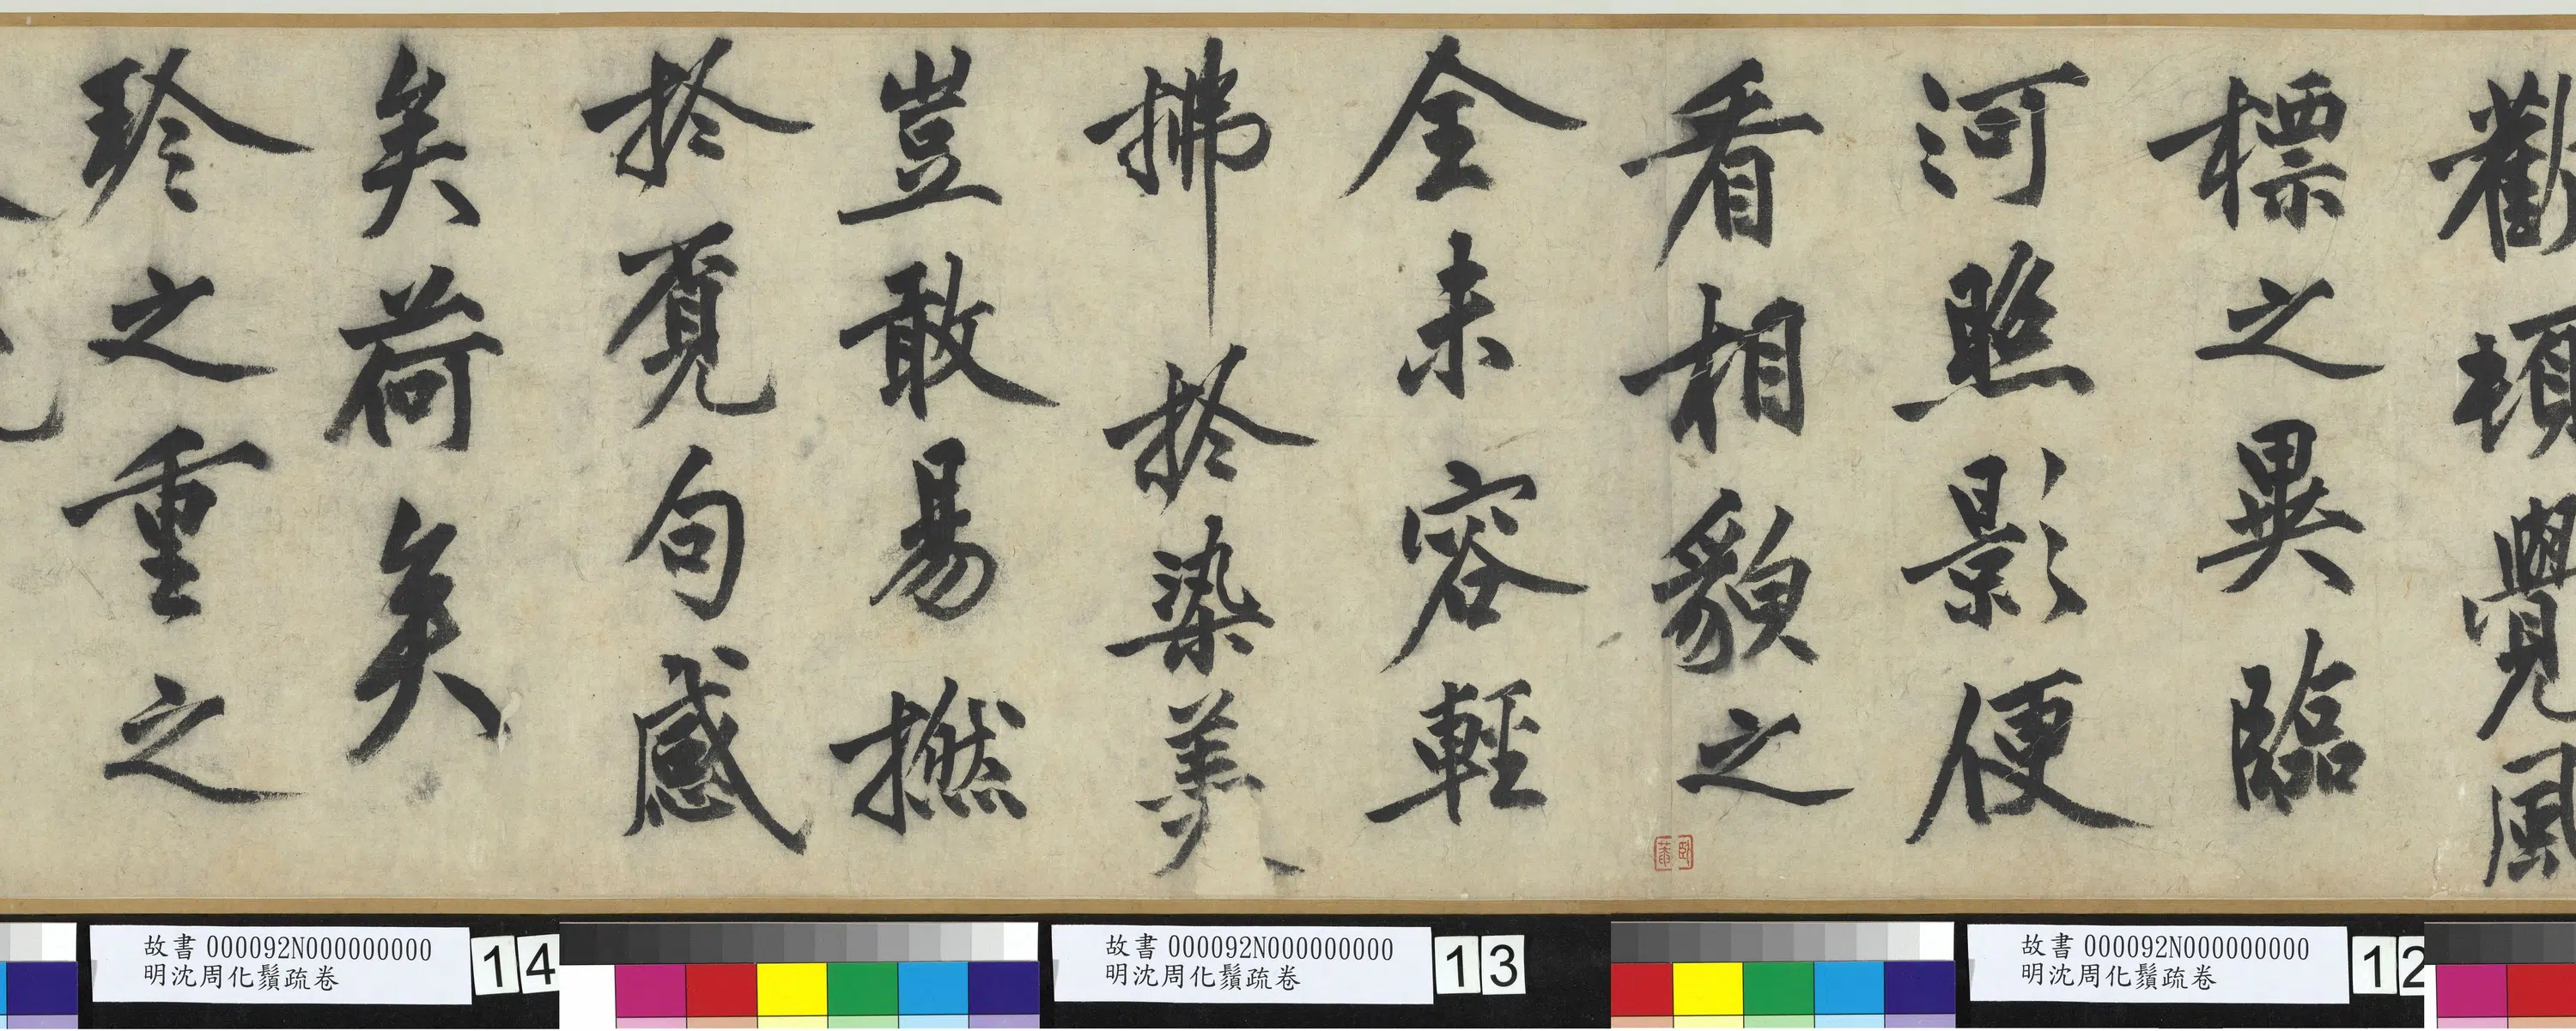 歡頓覺風
標之異臨
河照影便
看相貌之
全未容輕
拂於染羹
豈敢易撚
於覓句感
矣荷矣
珍之重之
臥菴
故書 000092N000000000
明沈周化鬚疏卷
12
故書 000092N000000000
明沈周化鬚疏卷
13
故書 000092N000000000
明沈周化鬚疏卷
14